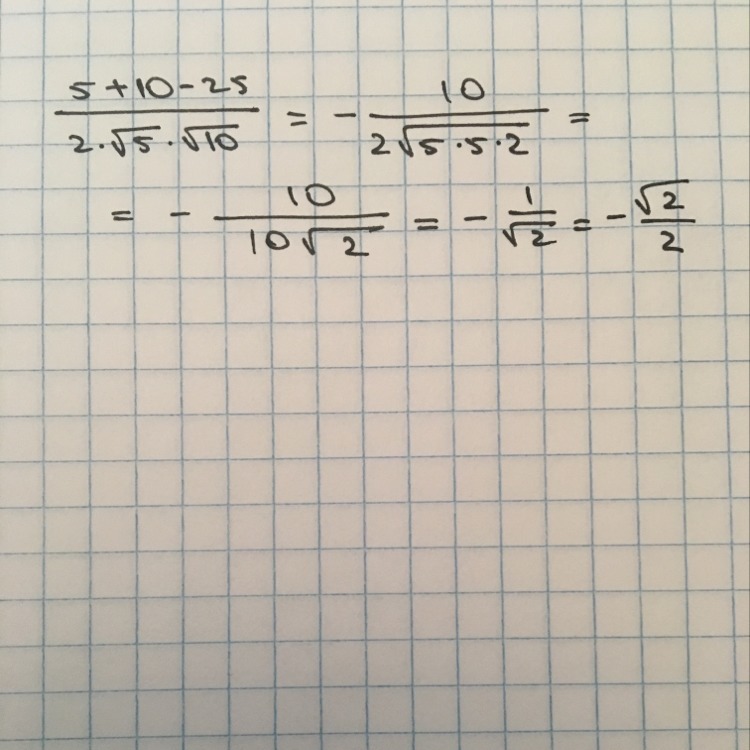 5+10-25 / 2·√5·√10 = - 10 / 2√5·5·2 =
= - 10 / 10√2 = - 1 / √2 = - √2 / 2